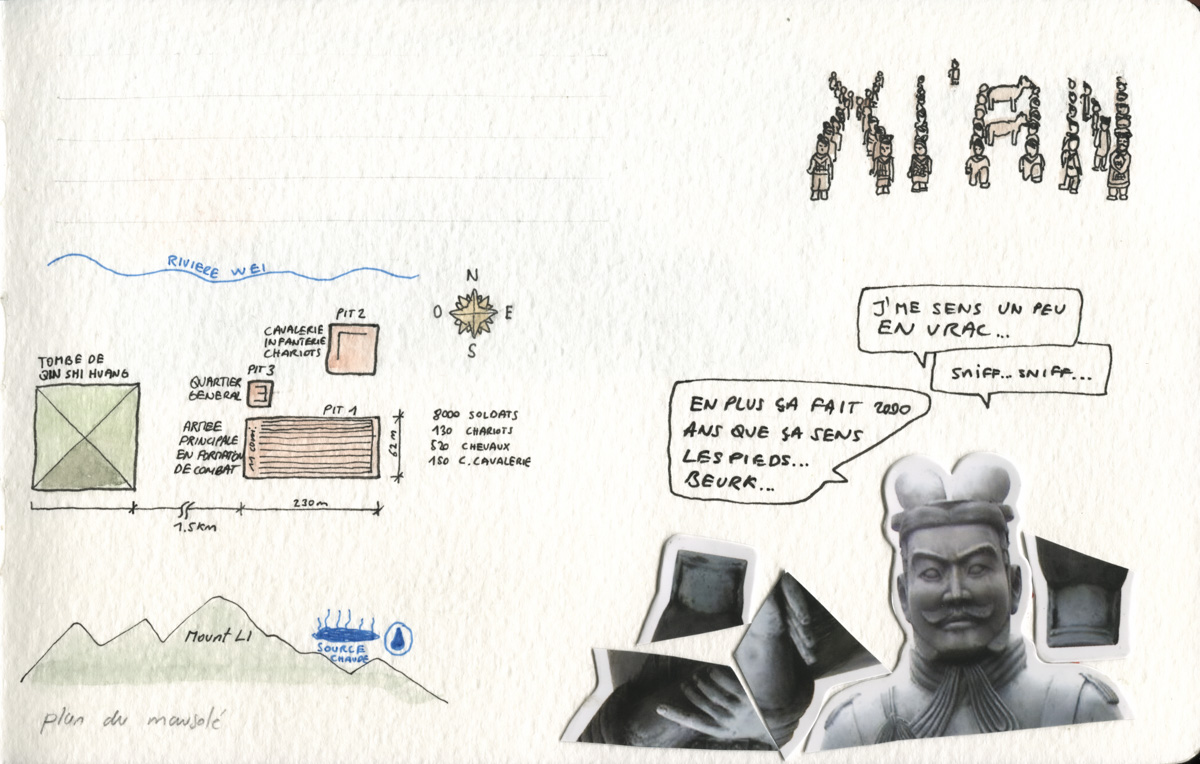 XI'AN
RIVIERE WEI
N
O
E
S
PIT 2
CAVALERIE
INFANTERIE
CHARIOTS
PIT 3
QUARTIER
GENERAL
TOMBE DE
QIN SHI HUANG
PIT 1
ARMEE
PRINCIPALE
EN FORMATION
DE COMBAT
62 m
8000 SOLDATS
130 CHARIOTS
520 CHEVAUX
150 C. CAVALERIE
230m
1.5km
Mount LI
SOURCE
CHAUDE
plan du mausolé
J'ME SENS UN PEU
EN VRAC...
SNIFF... SNIFF...
EN PLUS ÇA FAIT 2000
ANS QUE ÇA SENS
LES PIEDS...
BEURK...